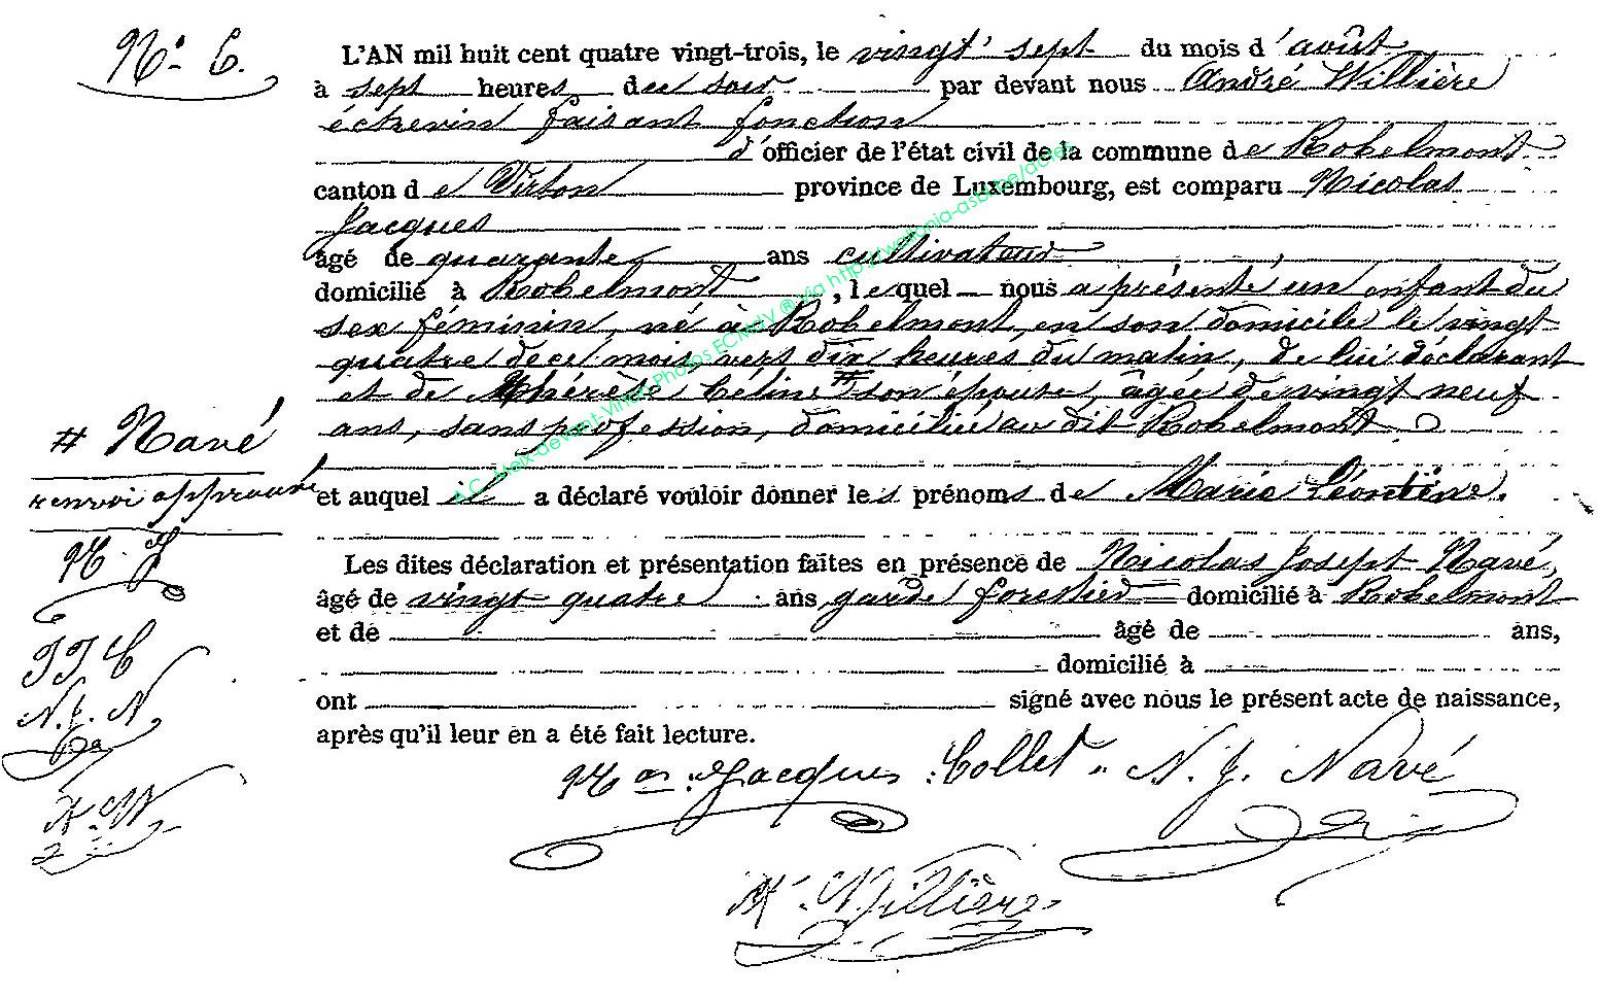 N° 6.
L'AN mil huit cent quatre vingt-trois, le vingt sept du mois d'août
à sept heures du soir par devant nous André Willière
échevin faisant fonction
d'officier de l'état civil de la commune de Robelmont
canton de Virton province de Luxembourg, est comparu Nicolas
Jacques
âgé de quarante ans cultivateur
domicilié à Robelmont, lequel nous a présenté un enfant du
sex féminin, né à Robelmont, en son domicile le vingt
quatre de ce mois vers dix heures du matin, de lui déclarant
et de Thérèse Céline # son épouse, âgée de vingt neuf
ans, sans profession, domiciliée au dit Robelmont
# Navé
renvoi approuvé
et auquel il a déclaré vouloir donner les prénoms de Marie Léontine.
N. J
Les dites déclaration et présentation faites en présence de Nicolas Josept Navé,
âgé de vingt quatre ans, garde forestier domicilié à Robelmont
et de âgé de ans,
J J C
domicilié à
N. J. N
ont signé avec nous le présent acte de naissance,
après qu'il leur en a été fait lecture.
Nas Jacques Collet N. J. Navé
A. W
A. Willière
A.C. Meix-devant-Virton Photos ECMdV ® via http://wallonia-asbl.be/actes